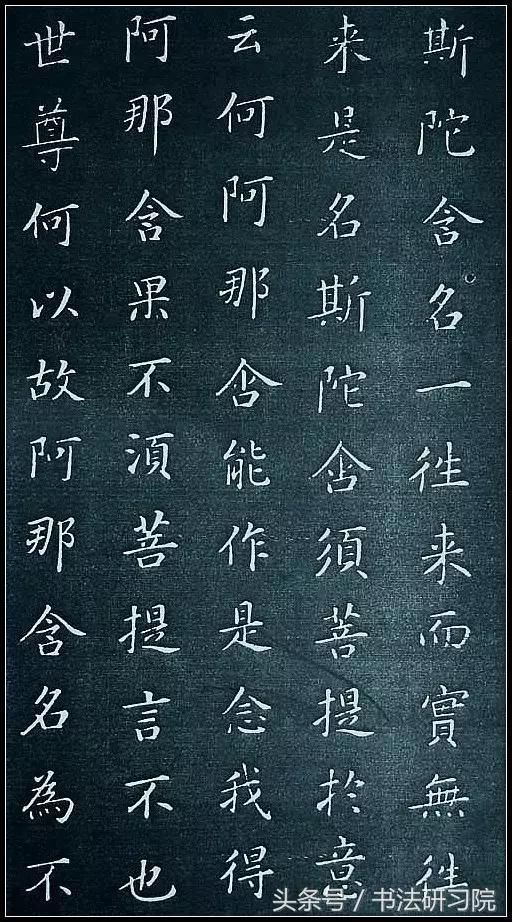 斯陀含名一徃来而實無徃
来是名斯陀含須菩提於意
云何阿那含能作是念我得
阿那含果不須菩提言不也
世尊何以故阿那含名為不
头条号 / 书法研习院